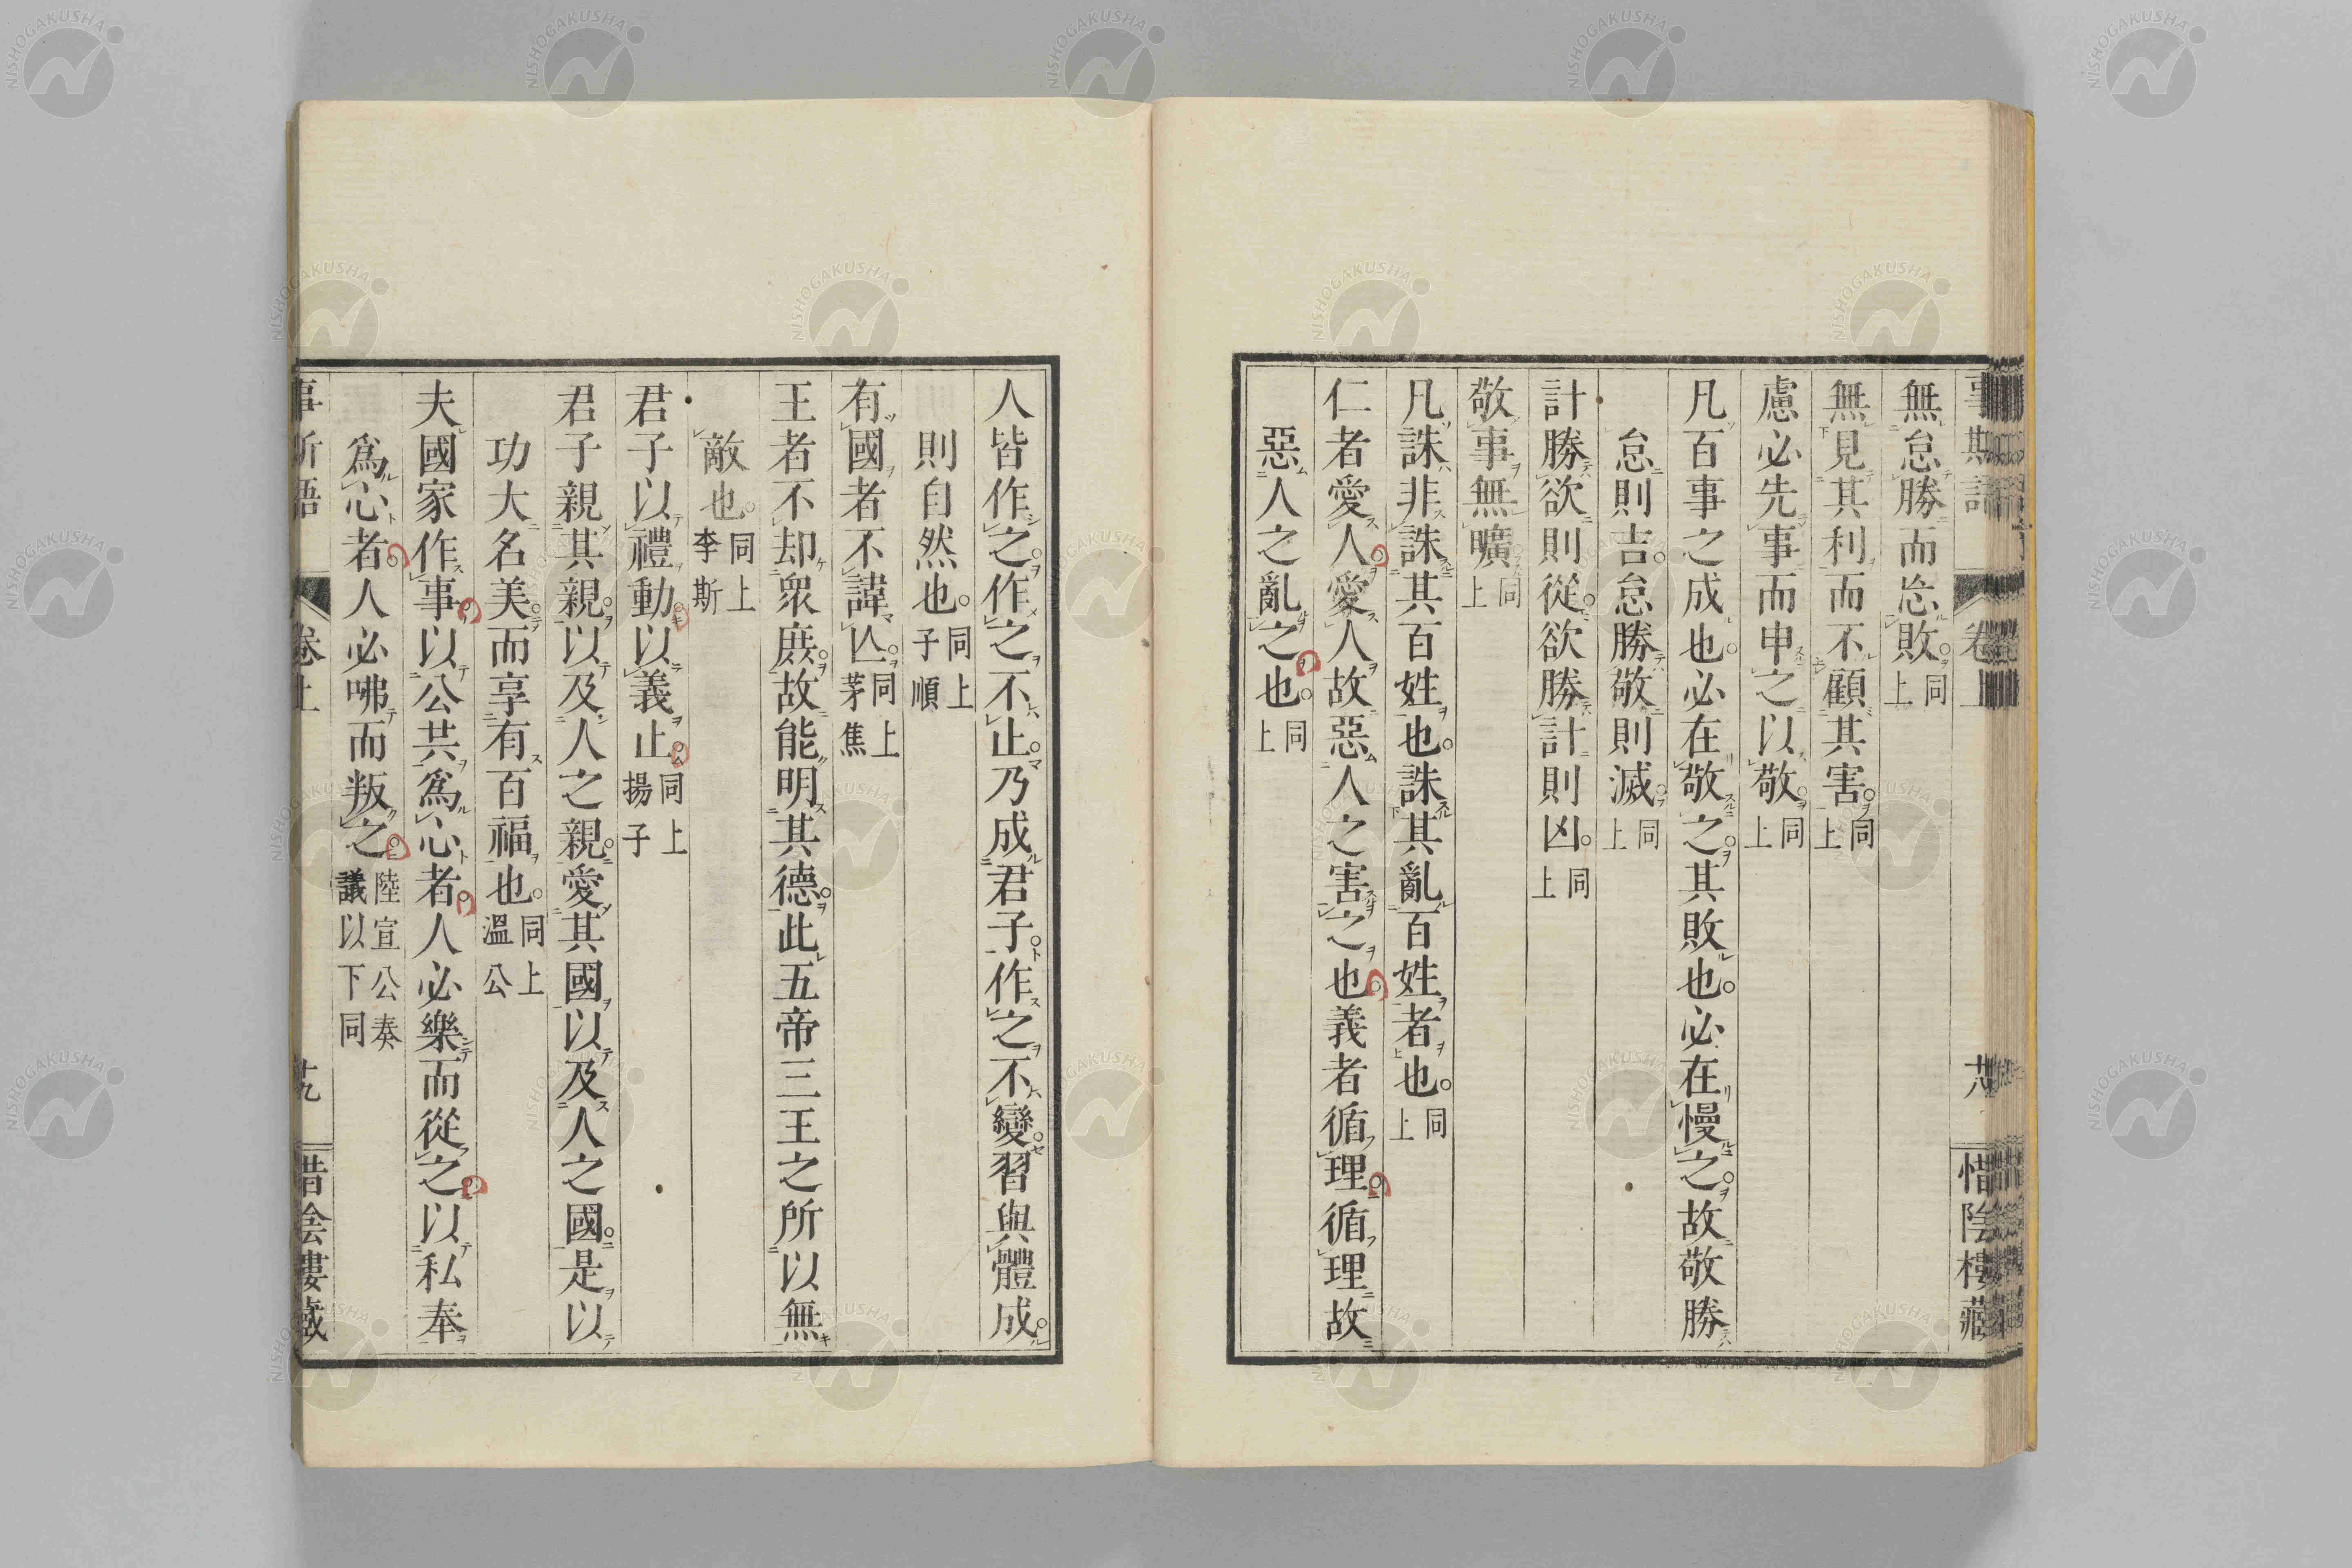 無怠勝而忘敗同上
無見其利而不顧其害同上
慮必先事而申之以敬同上
凡百事之成也必在敬之其敗也必在慢之故敬勝
怠則吉怠勝敬則滅同上
計勝欲則從欲勝計則凶同上
敬事無曠同上
凡誅非誅其百姓也誅其亂百姓者也同上
仁者愛人愛人故惡人之害之也義者循理循理故
惡人之亂之也同上
惜陰樓藏
人皆作之作之不止乃成君子作之不變習與體成
則自然也同上子順
有國者不諱亾同上茅焦
王者不却衆庶故能明其德此五帝三王之所以無
敵也同上李斯
君子以禮動以義止同上揚子
君子親其親以及人之親愛其國以及人之國是以
功大名美而享有百福也同上溫公
夫國家作事以公共爲心者人必樂而從之以私奉
爲心者人必咈而叛之陸宣公奏議以下同
事斯語 卷上 十九 惜陰樓藏
NISHOGAKUSHA